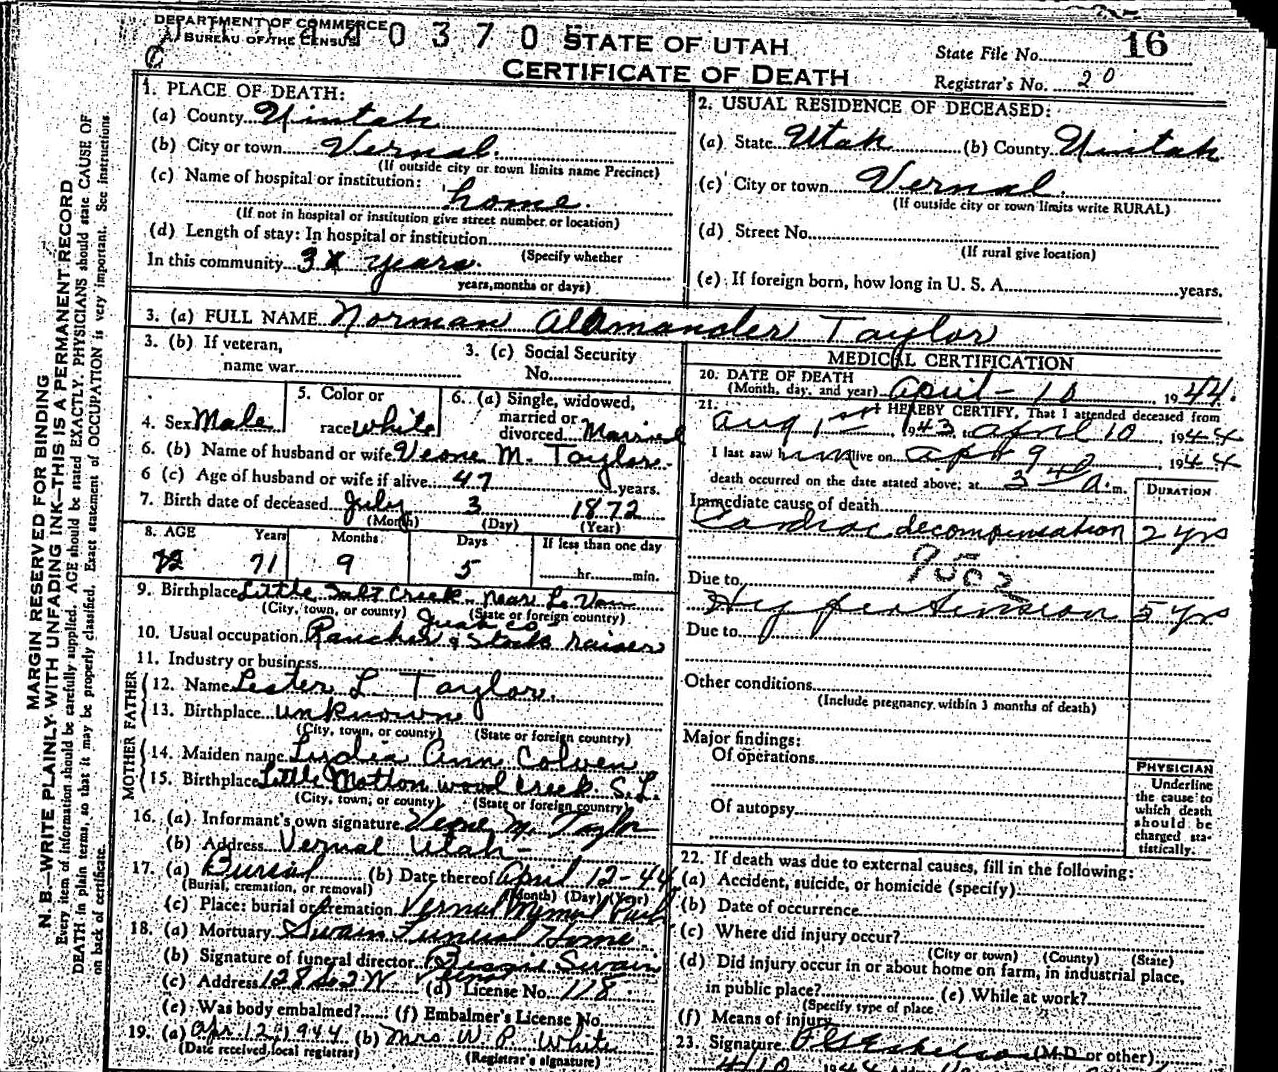 DEPARTMENT OF COMMERCE
BUREAU OF THE CENSUS
0 3 7 0
STATE OF UTAH
CERTIFICATE OF DEATH
State File No. 16
Registrar's No. 20
MARGIN RESERVED FOR BINDING
N. B.—WRITE PLAINLY WITH UNFADING INK—THIS IS A PERMANENT RECORD
Every item of information should be carefully supplied. AGE should be stated EXACTLY. PHYSICIANS should state CAUSE OF
DEATH in plain terms, so that it may be properly classified. Exact statement of OCCUPATION is very important. See instructions
on back of certificate.
1. PLACE OF DEATH:
(a) County Uintah
(b) City or town Vernal
(If outside city or town limits name Precinct)
(c) Name of hospital or institution:
home
(If not in hospital or institution give street number or location)
(d) Length of stay: In hospital or institution
(Specify whether
In this community years
years, months or days)
2. USUAL RESIDENCE OF DECEASED:
(a) State Utah (b) County Uintah
(c) City or town Vernal
(If outside city or town limits write RURAL)
(d) Street No.
(If rural give location)
(e) If foreign born, how long in U. S. A. years.
3. (a) FULL NAME Norman Taylor
3. (b) If veteran,
name war
3. (c) Social Security
No.
4. Sex Male
5. Color or
race white
6. (a) Single, widowed,
married or
divorced Married
6. (b) Name of husband or wife Veone M. Taylor
6 (c) Age of husband or wife if alive 47 years.
7. Birth date of deceased July 3 1872
(Month) (Day) (Year)
8. AGE Years Months Days If less than one day
72 71 9 5 hr. min.
9. Birthplace Little Salt Creek near Le Van
(City, town, or county) (State or foreign country)
Juab Co
10. Usual occupation Rancher & Stock raiser
11. Industry or business
FATHER
12. Name Lester L. Taylor
13. Birthplace unknown
(City, town, or county) (State or foreign country)
MOTHER
14. Maiden name Lydia Ann Colven
15. Birthplace Little Cottonwood Creek S.L.
(City, town, or county) (State or foreign country)
16. (a) Informant's own signature Veone M. Taylor
(b) Address Vernal Utah
17. (a) Burial (b) Date thereof April 12-44
(Burial, cremation, or removal) (Month) (Day) (Year)
(c) Place: burial or cremation Vernal Park
18. (a) Mortuary Swain Funeral Home
(b) Signature of funeral director Swain
(c) Address 128 So 2 W (d) License No. 118
(e) Was body embalmed? (f) Embalmer's License No.
19. (a) Apr. 12, 1944 (b) Mrs. W. P. White
(Date received local registrar) (Registrar's signature)
MEDICAL CERTIFICATION
20. DATE OF DEATH
(Month, day, and year) April - 10, 1944.
21. I HEREBY CERTIFY, That I attended deceased from
Aug 1st, 1943 to April 10, 1944
I last saw him alive on Apr 9, 1944
death occurred on the date stated above, at a. m.
DURATION
Immediate cause of death
Cardiac decompensation 2 yrs
Due to
Hypertension 5 yrs
Due to
Other conditions
(Include pregnancy within 3 months of death)
Major findings:
Of operations
Of autopsy
PHYSICIAN
Underline
the cause to
which death
should be
charged sta-
tistically.
22. If death was due to external causes, fill in the following:
(a) Accident, suicide, or homicide (specify)
(b) Date of occurrence
(c) Where did injury occur?
(City or town) (County) (State)
(d) Did injury occur in or about home on farm, in industrial place,
in public place? (e) While at work?
(Specify type of place)
(f) Means of injury
23. Signature (M.D. or other)